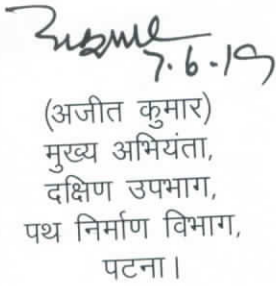 7.6.19
(अजीत कुमार)
मुख्य अभियंता,
दक्षिण उपभाग,
पथ निर्माण विभाग,
पटना।